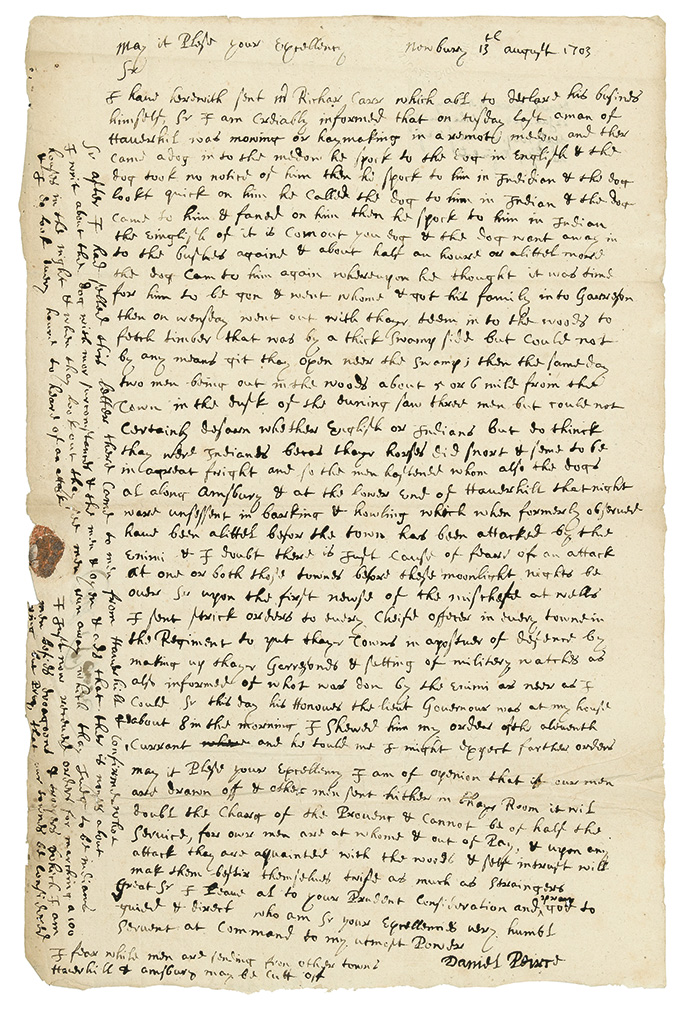 May it Plese your Excellency Newbury 13th august 1703
Sr
I have herewith sent Mr Richar Carr which abl to declare his busines
himself, Sr I am Crdiably informed that on tusday last aman of
Hauerhil was mowing or haymaking in a remote medow and ther
Came a dog in to the medow he spock to the dog in English & the
dog took no notice of him then he spock to him in Indidian & the dog
lookt quick on him he Called the dog to him in Indian & the dog
Came to him & faned on him then he spock to him in Indian
the Einglish of it is Com out you dog & the dog went away in
to the bushes againe & about half an houre or alittel more
the dog Cam to him again whereupon he thought it was time
for him to be gon & went whome & got his family into Garreson
then on wensday went out with thayr teem in to the woods to
fetch timber that was by a thick Swamp side but Could not
by any means git thay open neer the Swamp; then the same day
two men being out in the woods about 5 or 6 mile from the
Town in the dusk of the euning saw three men but could not
Certainly desarn whether English or Indians but do thinck
thay were Indianes becas thayr horses did snort & seme to be
in agreat fright and so the men hastened whom also the dogs
al along Amsbury & at the Lower End of Hauerhill that night
ware unsessent in barking & howling which when formerly observed
have been alittel befor the town has been attacked by the
Enimi & I doubt there is Just Cause of feare of an attack
at one or both those townes before these moonlight nights be
ouer Sr upon the first newse of the mischefe at wells
I sent strick orders to every Cheife officer in every towne in
the Regiment to put thayr Towns in apostuer of defence by
making up thayr Garresonds & setting of militery watches as
also informed of whot was don by the Enimi as neer as I
Could Sr this day his Honoure the lieut Governour was at my house
about 8 in the morning I Shewed him my order of the aleventh
Currant and he tould me I might expect farther orders
may it Plese your Excellency I am of openion that if our men
are drawn off & other men sent hither in thayr Room it wil
doubl the Charg of the Provenc & Cannot be of half the
Service, for owr men are at whome & out of Pay, & upon eny
attack thay are aquainted with the woods & self intrust will
mak them bestir themselves twise as much as straingers
Great Sr I Leave al to your Prudent Consideration and pray god to
guied & direct who am Sr your Excellencies very humbl
Servent at Command to my utmost Power
Daniel Peirce
I fear while men are sending from other towns
Hauerhill & amsbury may be Cutt off
Sr after I had selled this letter there Came to men from Hauerhill & Confirme what
I writ about the dog with mor sircomstances & the men & oxen & add that ther is noyes about
houses in the night & when thay look out thay see men run away which thay Judg to be indians
& I do look every houre to heare of an attack
I Just now receved orders for marching a 100
men besids dragoons & troopers which I am
Pray that our towns be considered